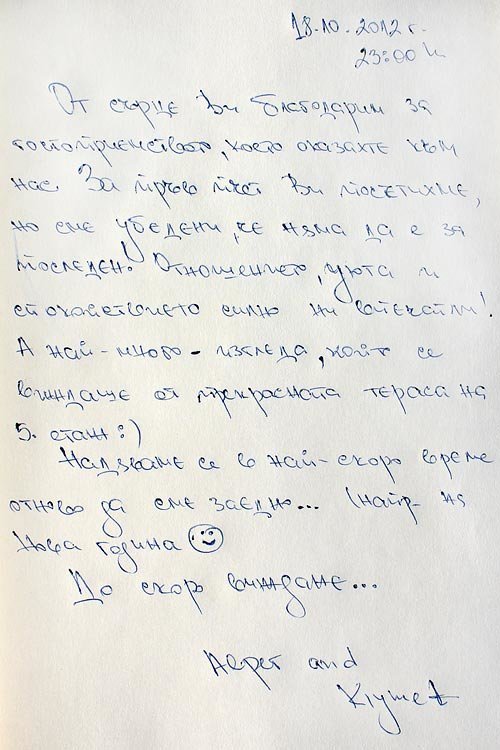 18.10.2012 г.
23:00 h
От сърце Ви благодарим за
гостоприемството, което оказахте към
нас. За първ път Ви посетихме,
но сме убедени, че няма да е за
последен! Отношението, уюта и
спокойствието силно ни впечатли!
А най-много - изгледа, който се
виждаше от прекрасната тераса на
5. етаж :)
Надяваме се в най-скоро време
отново да сме заедно... (напр. на
Нова година ☺
До скоро виждане...
Alper and
Kıymet